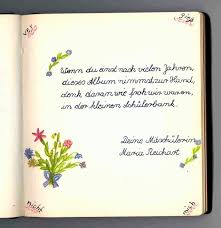 Wenn du einst nach vielen Jahren,
dieses Album nimmst zur Hand,
denk daran wie froh wir waren,
in der kleinen Schülerbank.
Deine Mitschülerin
Maria Reichart